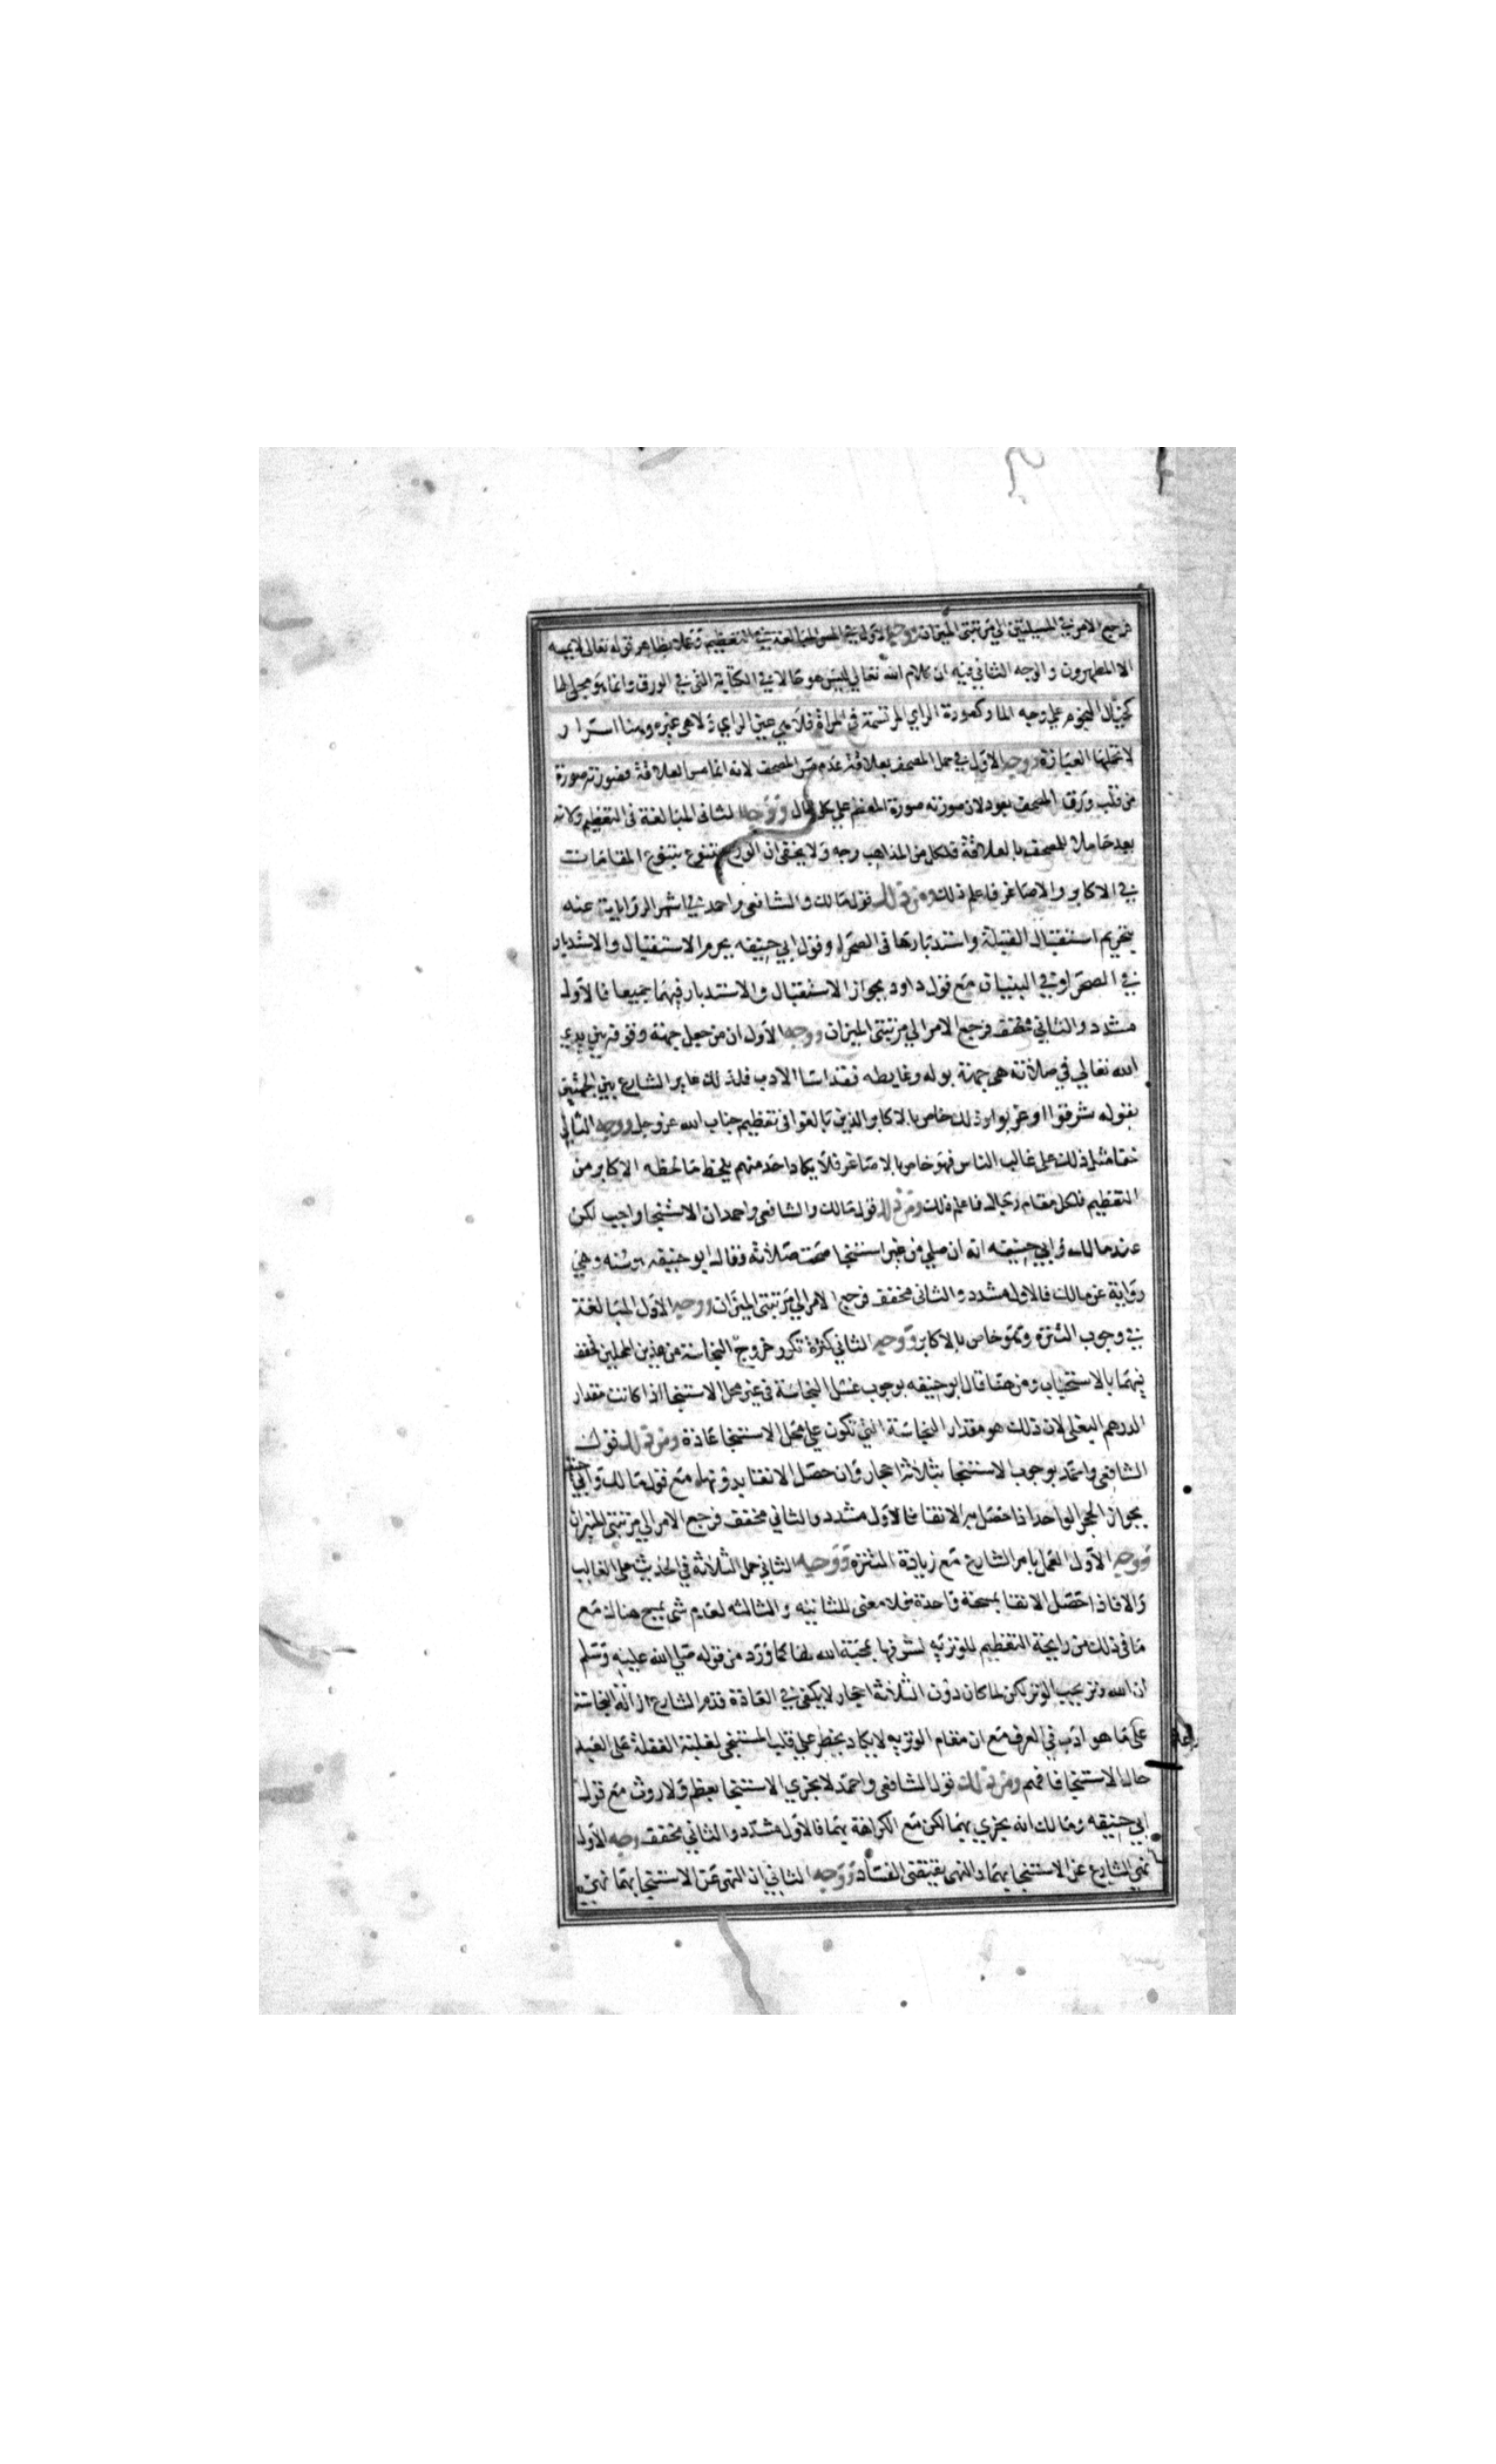 فرجع الامر في المسيلتين الي مرتبتي الميزان ووجه الاول في المس المبالغة في التعظيم وعملا بظاهر قوله تعالى لا يمسه
الا المطهرون والوجه الثاني فيه ان كلام الله تعالي ليس هو حالا في الكتابة التي في الورق وانما هو مجلى لها
كخيال النجوم علي وجه الما وكصورة الراي المرتسمة في المراة فلا هي عين الراي ولا هي غيره وهنا اسرار
لا تحملها العبارة ووجه الاول في حمل المصحف بعلاقة عدم مس المصحف لانه انما مس العلاقة فصورته صورة
من قلب ورق المصحف بعود لان صورته صورة المعظم علي كل حال ووجه الثاني المبالغة في التعظيم ولانه
يعد حاملا للمصحف بالعلاقة فلكل من المذاهب وجه ولا يخفى ان الورع يتنوع بتنوع المقامات
في الاكابر والاصاغر فاعلم ذلك ومن ذلك قول مالك والشافعي واحمد في اشهر الروايات عنه
بتحريم استقبال القبلة واستدبارها في الصحرا وقول ابي حنيفه يحرم الاستقبال والاستدبار
في الصحرا وفي البنيان مع قول داود بجواز الاستقبال والاستدبار فيهما جميعا فالاول
مشدد والثاني مخفف فرجع الامر الي مرتبتي الميزان ووجه الاول ان من جعل جهة وقوفه بين يدي
الله تعالي في صلاته هي جهة بوله وغايطه فقد اسا الادب فلذلك غاير الشارع بين الجهتين
بقوله شرقوا او غربوا وذلك خاص بالاكابر الذين بالغوا في تعظيم جناب الله عز وجل ووجه الثاني
خفا مثل ذلك على غالب الناس فهو خاص بالاصاغر فلا يكاد احد منهم يلحظ ما لحظه الاكابر من
التعظيم فلكل مقام رجال فاعلم ذلك ومن ذلك قول مالك والشافعي واحمد ان الاستنجا واجب لكن
عند مالك وابي حنيفه انه ان صلي من غير استنجا صحت صلاته وقال ابو حنيفه هو سنه وهي
رواية عن مالك فالاول مشدد والثاني مخفف فرجع الامر الي مرتبتي الميزان ووجه الاول المبالغة
في وجوب التنزه وهو خاص بالاكابر ووجه الثاني كثرة تكرر خروج النجاسة من هذين المحلين فخفف
فيهما بالاستحباب ومن هنا قال ابو حنيفه بوجوب غسل النجاسة في غير محل الاستنجا اذا كانت مقدار
الدرهم البغلي لان ذلك هو مقدار النجاسة التي تكون علي محل الاستنجا عادة ومن ذلك قول
الشافعي واحمد بوجوب الاستنجا بثلاثة احجار وان حصل الانقا بدونها مع قول مالك وابي حنيفه
بجواز الحجر الواحد اذا حصل به الانقا فالاول مشدد والثاني مخفف فرجع الامر الي مرتبتي الميزان
ووجه الاول العمل بامر الشارع مع زيادة التنزه ووجه الثاني حمل الثلاثة في الحديث على الغالب
والا فاذا حصل الانقا بمسحة واحدة فلا معنى للثانيه والثالثه لعدم شي يمسح هنالك مع
ما في ذلك من رايحة التعظيم للوتريه لشرفها بمحبة الله لها كما ورد من قوله صلي الله عليه وسلم
ان الله وتر يحب الوتر لكن لما كان دون الثلاثة احجار لا يكفي في العادة قدم الشارع ازالة النجاسة
على ما هو ادب في العرف مع ان مقام الوتريه لا يكاد يخطر علي قلب المستنجي لغلبة الغفلة على العبد
حال الاستنجا فافهم ومن ذلك قول الشافعي واحمد لا يجزي الاستنجا بعظم ولا روث مع قول
ابي حنيفه ومالك انه يجزي بهما لكن مع الكراهة بهما فالاول مشدد والثاني مخفف وجه الاول
نهي الشارع عن الاستنجا بهما والنهي يقتضي الفساد ووجه الثاني ان النهي عن الاستنجا بهما نهي